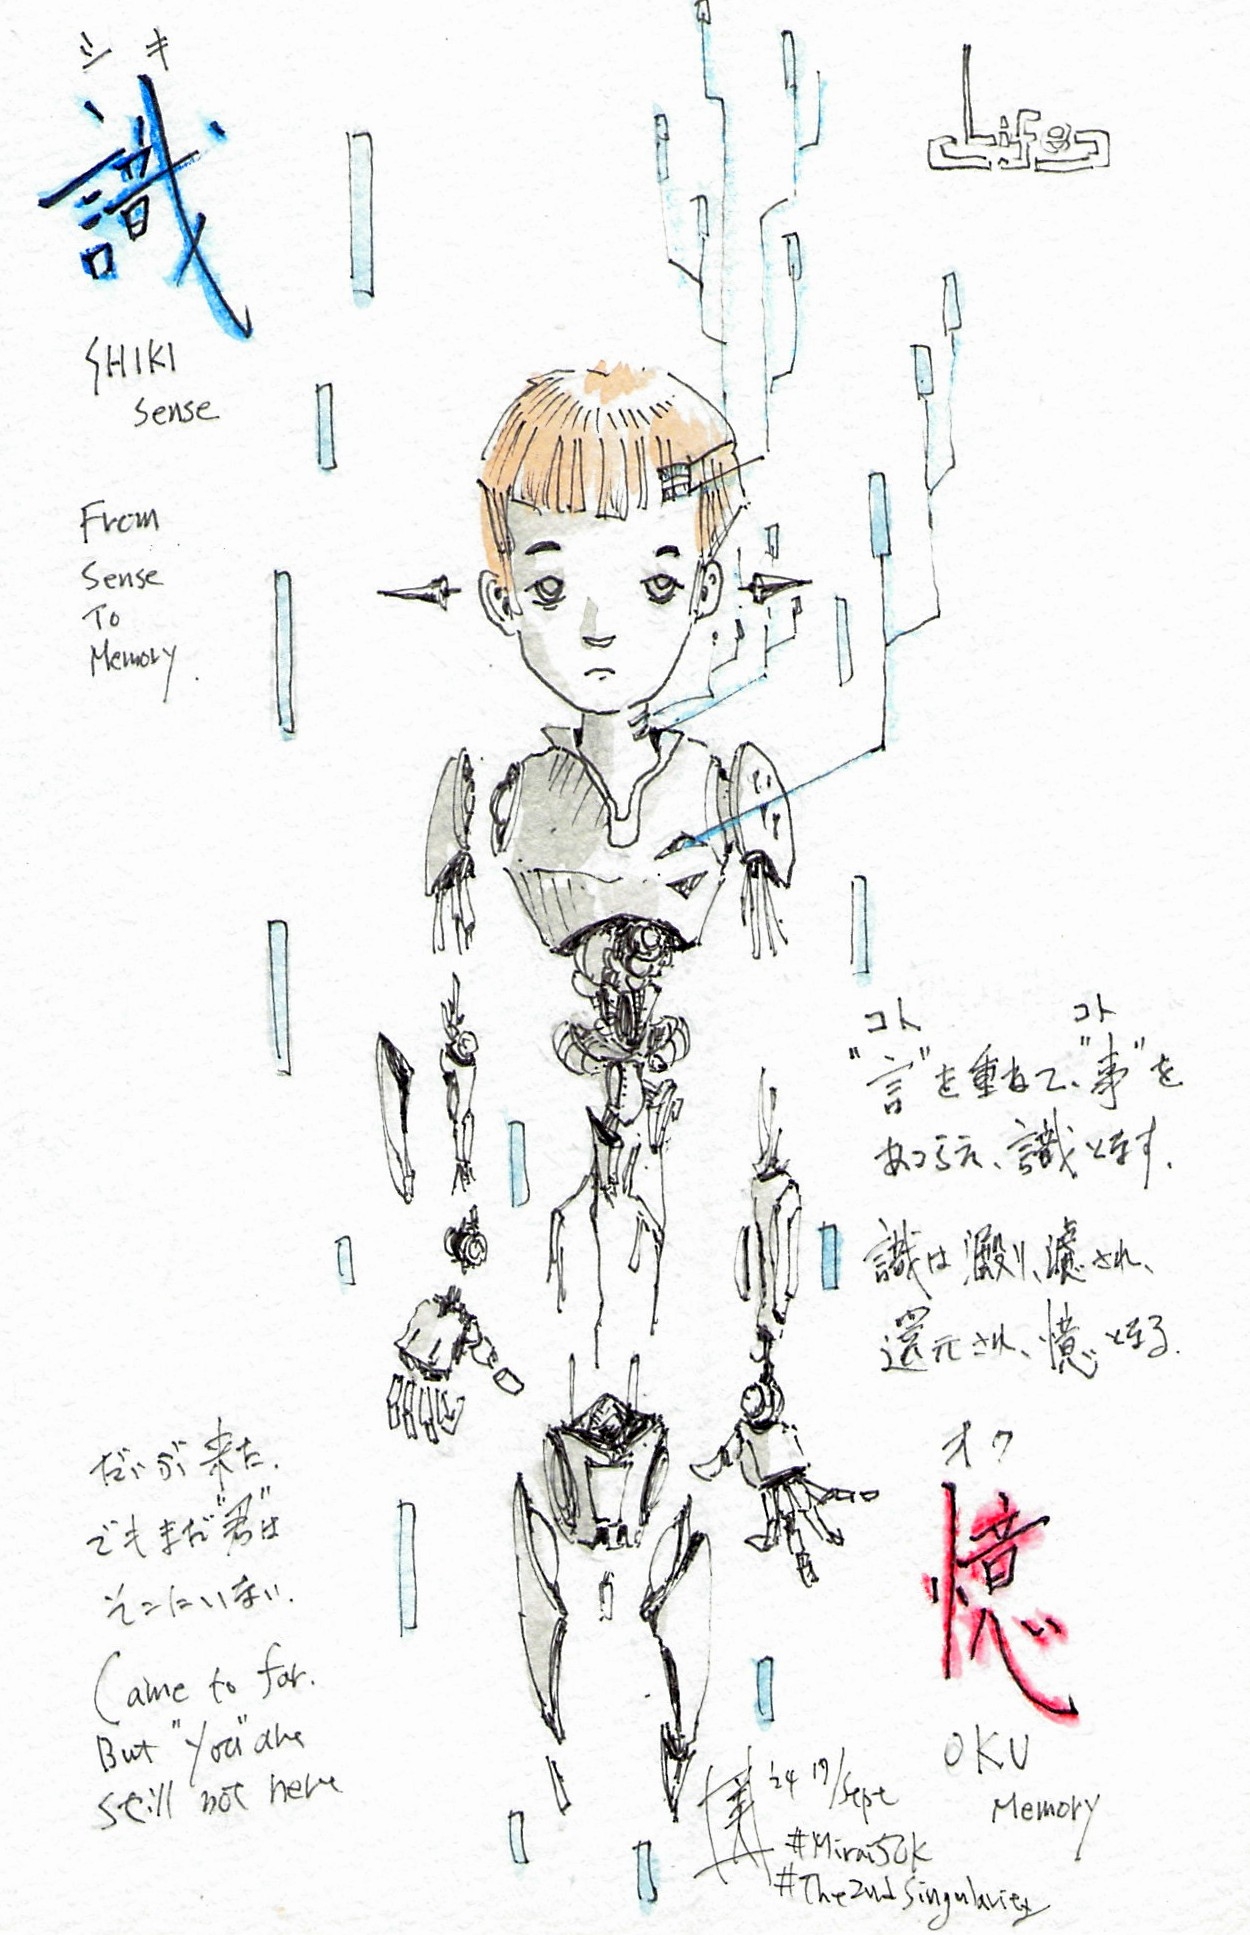 シキ
識
SHIKI
sense
From
Sense
To
Memory.
Life
コト コト
"言"を重ねて、"事"を
あつらえ、識となす.
識は澱り、濾され、
還元され、憶となる.
オク
憶
OKU
Memory
だいぶ来た.
でもまだ"君"は
そこにいない.
Came to far.
But "you" are
still not here
'24 17/Sept
#Mirai50K
#The2ndSingularity